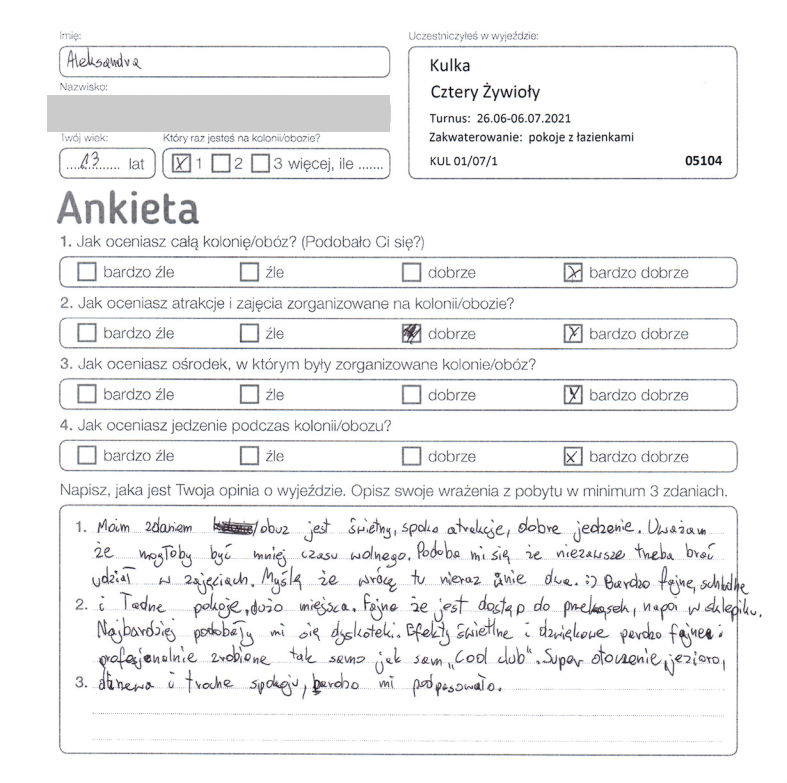 Imię:
Aleksandra
Nazwisko:
Twój wiek:
Który raz jesteś na kolonii/obozie?
....13....... lat
1 2 3 więcej, ile .......
Uczestniczyłeś w wyjeździe:
Kulka
Cztery Żywioły
Turnus: 26.06-06.07.2021
Zakwaterowanie: pokoje z łazienkami
KUL 01/07/1 05104
Ankieta
1. Jak oceniasz całą kolonię/obóz? (Podobało Ci się?)
bardzo źle źle dobrze bardzo dobrze
2. Jak oceniasz atrakcje i zajęcia zorganizowane na kolonii/obozie?
bardzo źle źle dobrze bardzo dobrze
3. Jak oceniasz ośrodek, w którym były zorganizowane kolonie/obóz?
bardzo źle źle dobrze bardzo dobrze
4. Jak oceniasz jedzenie podczas kolonii/obozu?
bardzo źle źle dobrze bardzo dobrze
Napisz, jaka jest Twoja opinia o wyjeździe. Opisz swoje wrażenia z pobytu w minimum 3 zdaniach.
1. Moim zdaniem /obuz jest świetny, spoko atrakcje, dobre jedzenie. Uważam
że mogłoby być mniej czasu wolnego. Podoba mi się że niezawsze trzeba brać
udział w zajęciach. Myślę że wrócę tu nieraz i nie dwa. :) Bardzo fajne, schludne
2. i ładne pokoje, dużo miejsca. Fajne że jest dostęp do przekąsek, napoi w sklepiku.
Najbardziej podobały mi się dyskoteki. Efekty świetlne i dźwiękowe bardzo fajne i
profesjonalnie zrobione tak samo jak sam „Cool club". Super otoczenie, jezioro,
3. drzewa i troche spokoju, bardzo mi podpasowało.